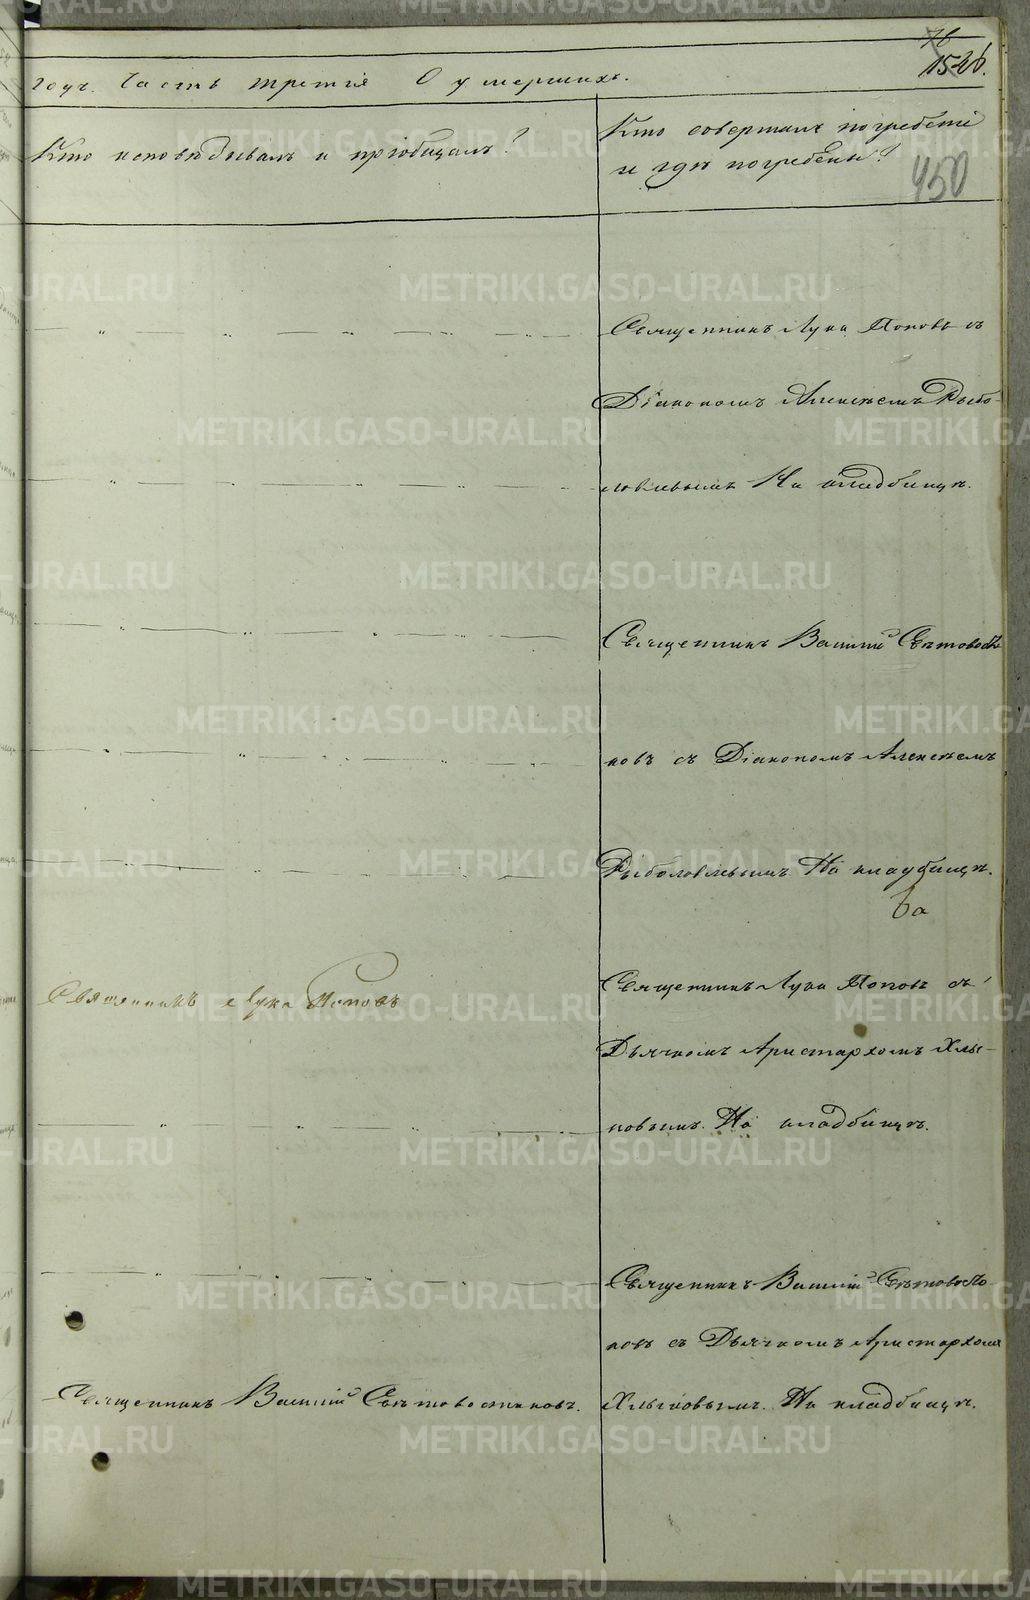 76
1526.
годъ. Часть третія О умершихъ.
Кто исповѣдывалъ и пріобщалъ?
Кто совершалъ погребеніе
и гдѣ погребены?
450
Священникъ Лука Поповъ съ
Діакономъ Алексѣемъ Рыбо-
ловлевымъ На кладбищѣ.
Священникъ Василій Свѣтовосто-
ковъ съ Діакономъ Алексѣемъ
Рыболовлевымъ На кладбищѣ.
Священникъ Лука Поповъ
Священникъ Лука Поповъ съ
Дьячкомъ Аристархомъ Хлы-
новымъ. На кладбищѣ.
Священникъ Василій Свѣтовосто-
ковъ съ Дьячкомъ Аристархомъ
Священникъ Василій Свѣтовостоковъ.
Хлыновымъ. На кладбищѣ.
METRIKI.GASO-URAL.RU